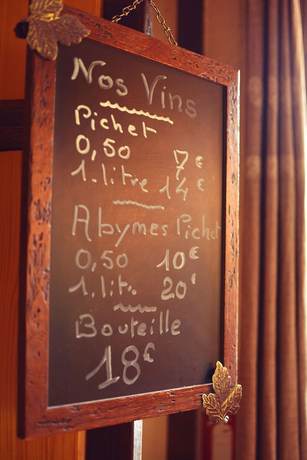 Nos Vins
Pichet
0,50 7€
1.litre 14€
Abymes Pichet
0,50 10€
1.lit. 20€
Bouteille
18€